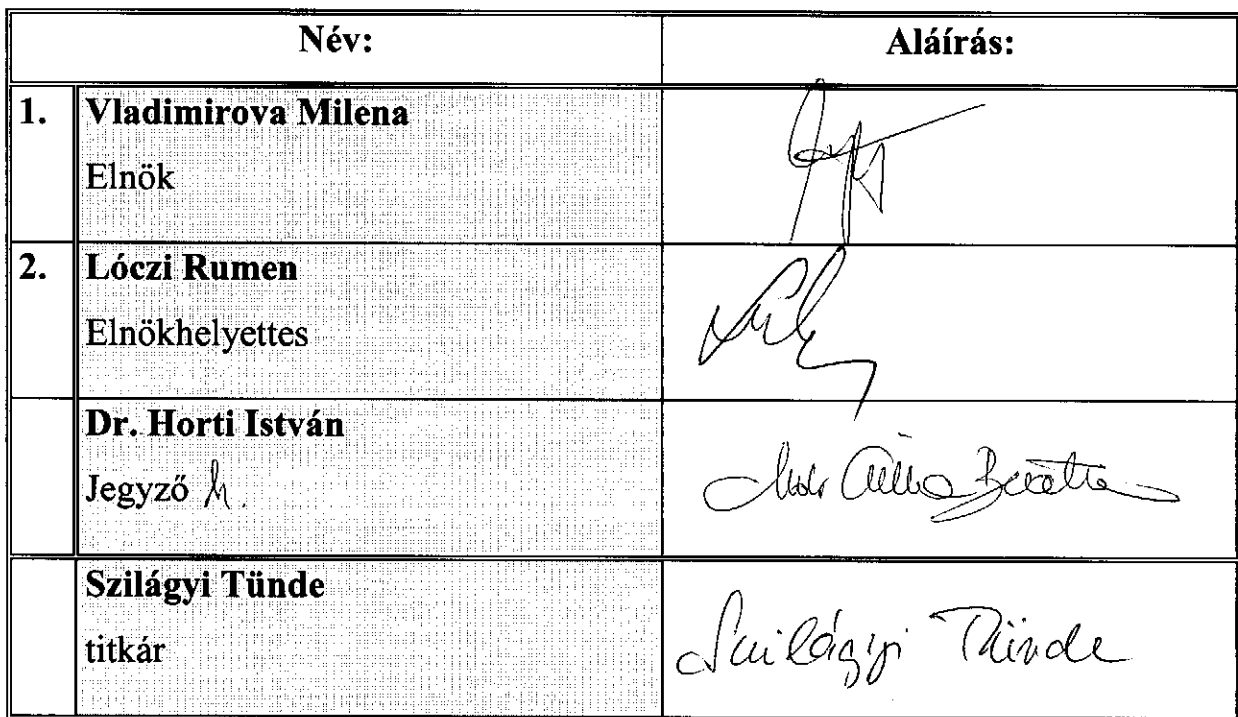 Név: Aláírás:
1. Vladimirova Milena
Elnök
2. Lóczi Rumen
Elnökhelyettes
Dr. Horti István
Jegyző h.
Szilágyi Tünde
titkár
Szilágyi Tünde